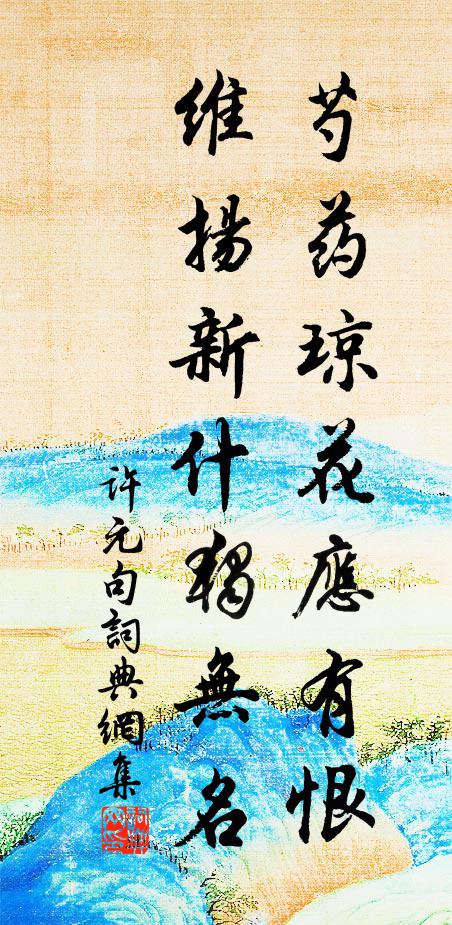 芍药琼花應有恨
維揚新什獨無名
许元句詞典網集